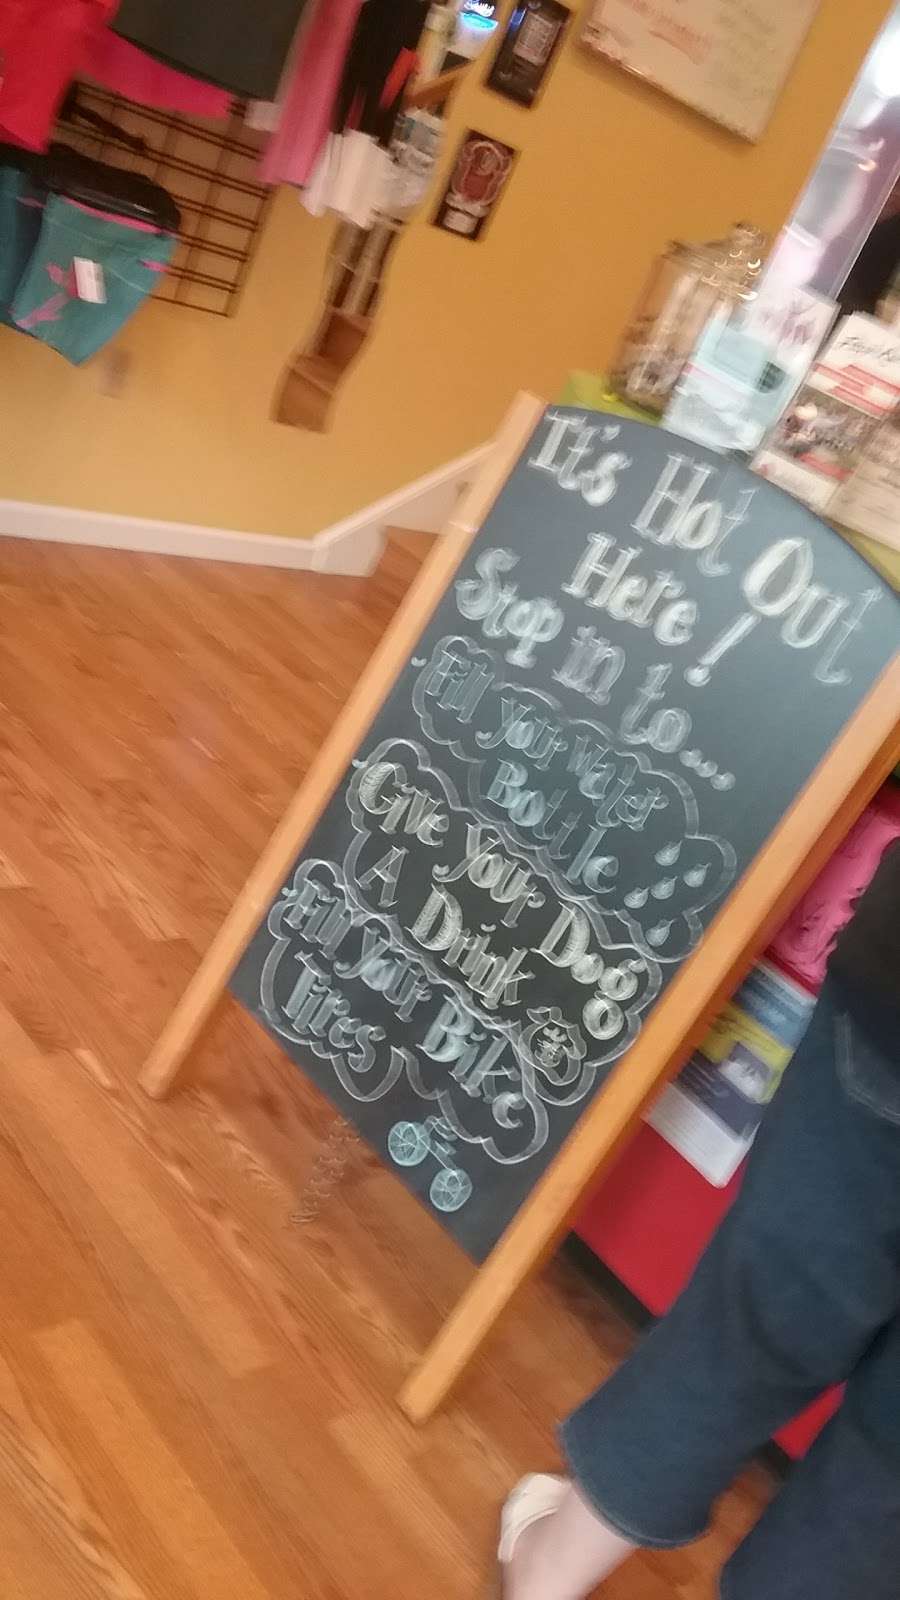 It's Hot Out
Here!
Step in to...
Fill your water
Bottle
Give your Dog
A Drink
Fill your Bike
Tires